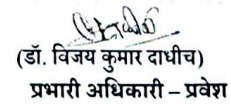 (डॉ. विजय कुमार दाधीच)
प्रभारी अधिकारी – प्रवेश